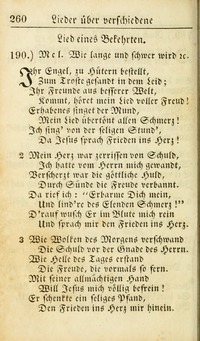 260 Lieder über verschiedene
Lied eines Bekehrten.
190.) Mel. Wie lange und schwer wird ꝛc.
Ihr Engel, zu Hütern bestellt,
Zum Troste gesandt in dem Leid;
Ihr Freunde aus besserer Welt,
Kommt, höret mein Lied voller Freud!
Erhabenes singet der Mund,
Mein Lied übertönt allen Schmerz!
Ich sing' von der seligen Stund',
Da Jesus sprach Frieden ins Herz!
2 Mein Herz war zerrissen von Schuld,
Ich hatte vom Herrn mich gewandt,
Verscherzt war die göttliche Huld,
Durch Sünde die Freude verbannt.
Da rief ich: "Erbarme Dich mein,
Und lind're des Elenden Schmerz!"
D'rauf wusch Er im Blute mich rein
Und sprach mir den Frieden ins Herz.
3 Wie Wolken des Morgens verschwand
Die Schuld vor der Gnade des Herrn.
Wie Helle des Tages erstand
Die Freude, die vormals so fern.
Mit seiner allmächtigen Hand
Will Jesus mich völlig befrein!
Er schenkte ein seliges Pfand,
Den Frieden ins Herz mir hinein.